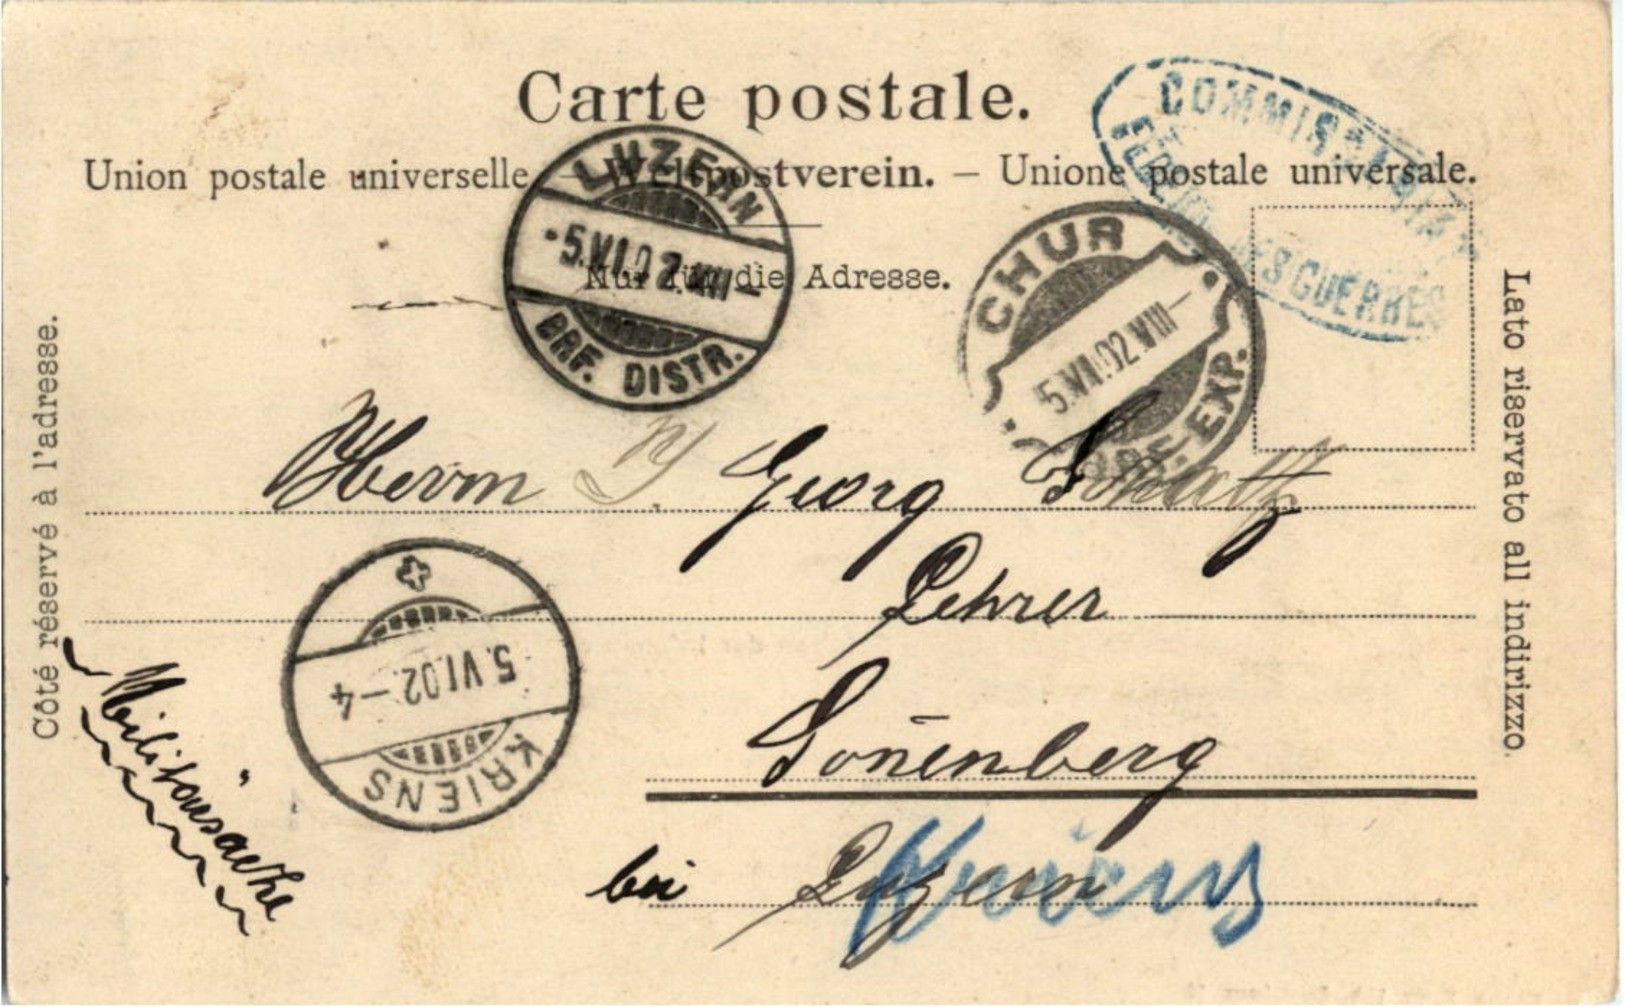 Carte postale.
Union postale universelle – Weltpostverein. – Unione postale universale.
Nur für die Adresse.
Côté réservé à l'adresse.
Lato riservato all indirizzo.
COMMISSARIAT
DES GUERRES
LUZERN
5.VI.02.VIII–
BRF. DISTR.
CHUR
5.VI.02.VIII–
BRF. EXP.
Herrn Georg
Lehrer
Soñenberg
bei Luzern
Kriens
5.VI.02.–4
KRIENS
Militärsache